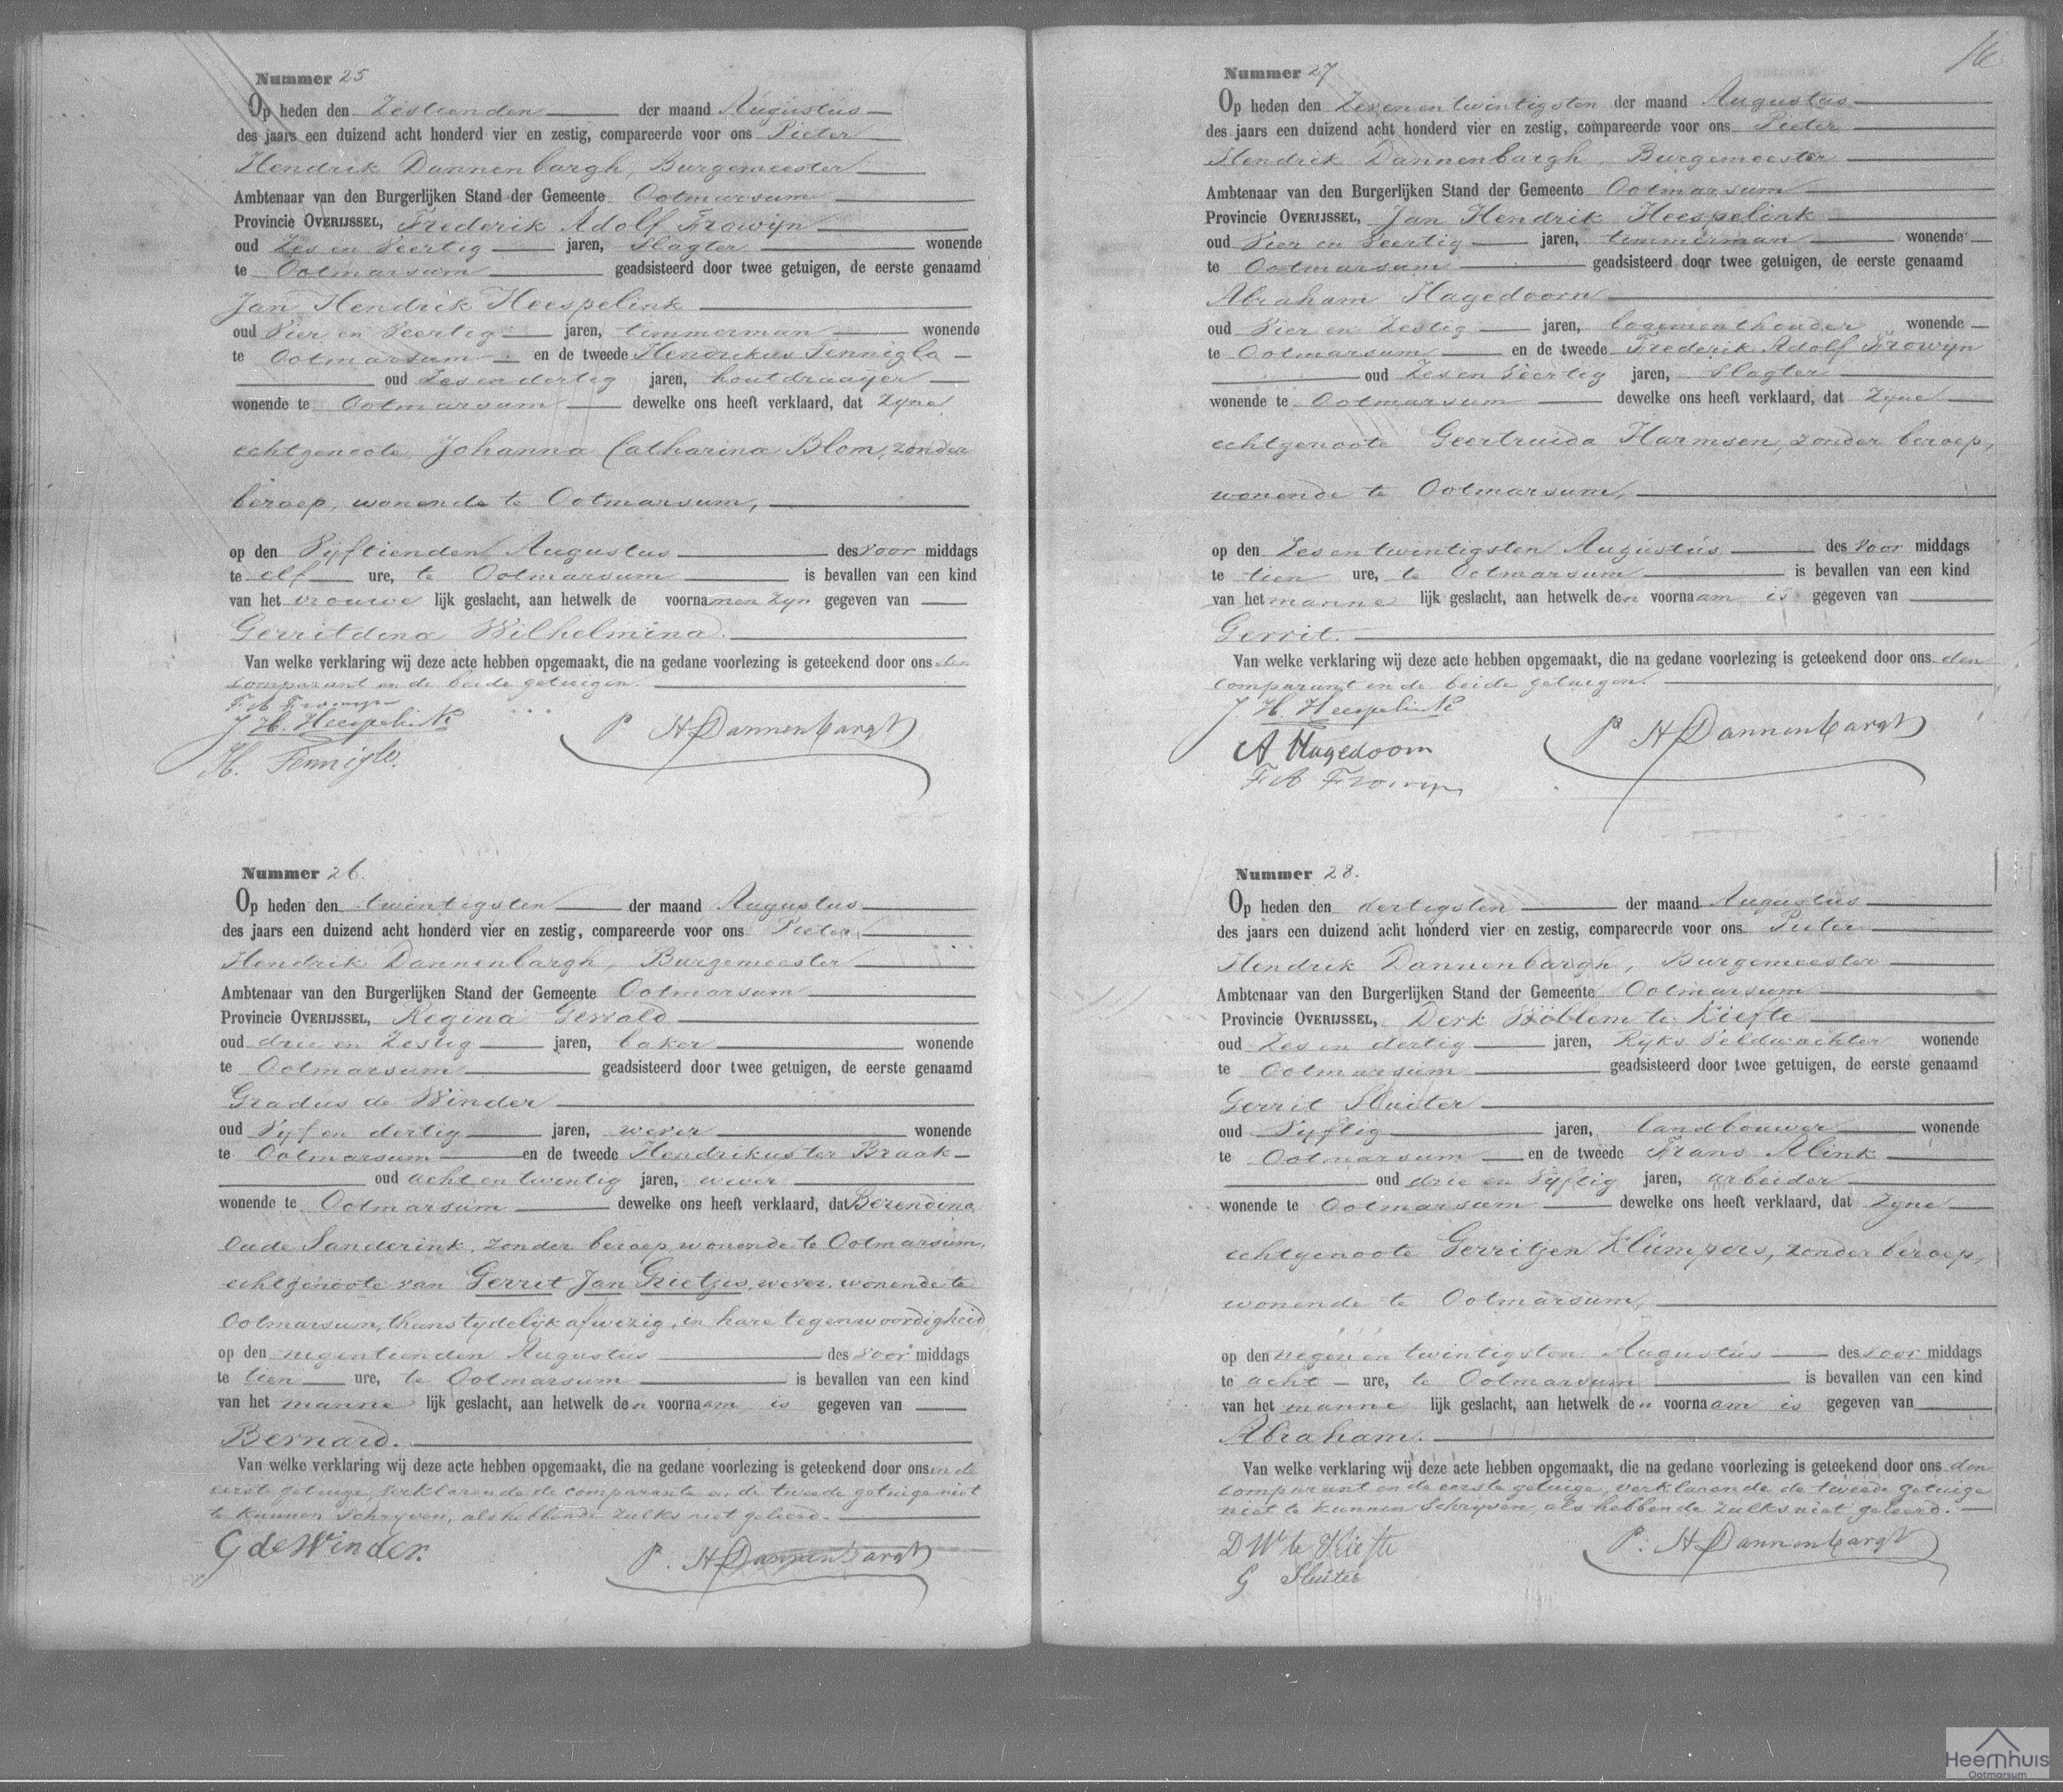 Nummer 25
Op heden den Zestienden der maand Augustus
des jaars een duizend acht honderd vier en zestig, compareerde voor ons Pieter
Hendrik Dannenbargh, Burgemeester
Ambtenaar van den Burgerlijken Stand der Gemeente Ootmarsum
Provincie OVERIJSSEL, Frederik Adolf Frowijn
oud Zes en Veertig jaren, Slagter wonende
te Ootmarsum geadsisteerd door twee getuigen, de eerste genaamd
Jan Hendrik Heespelink
oud Vier en Veertig jaren, timmerman wonende
te Ootmarsum en de tweede Hendrikus Tenniglo
oud Zes en dertig jaren, houtdraaijer
wonende te Ootmarsum dewelke ons heeft verklaard, dat Zyne
echtgenoote Johanna Catharina Blom, zonder
beroep, wonende te Ootmarsum,
op den Vyftienden Augustus des voor middags
te elf ure, te Ootmarsum is bevallen van een kind
van het vrouwe lijk geslacht, aan hetwelk de voornamen zyn gegeven van
Gerritdina Wilhelmina.
Van welke verklaring wij deze acte hebben opgemaakt, die na gedane voorlezing is geteekend door ons den
comparant en de beide getuigen.
F. A Frowijn
J. H. Heespelink
H. Tenniglo.
P H Dannenbargh
Nummer 26.
Op heden den twintigsten der maand Augustus
des jaars een duizend acht honderd vier en zestig, compareerde voor ons Pieter
Hendrik Dannenbargh, Burgemeester
Ambtenaar van den Burgerlijken Stand der Gemeente Ootmarsum
Provincie OVERIJSSEL, Regina
oud drie en Zestig jaren, baker wonende
te Ootmarsum geadsisteerd door twee getuigen, de eerste genaamd
Gradus de Winder
oud Vyf en dertig jaren, wever wonende
te Ootmarsum en de tweede Hendrikus ter Braak
oud acht en twintig jaren, wever
wonende te Ootmarsum dewelke ons heeft verklaard, dat Berendina
Oude Sanderink, zonder beroep wonende te Ootmarsum,
echtgenoote van Gerrit Jan Grietjes, wever, wonende te
Ootmarsum, thans tydelyk afwezig, in hare tegenwoordigheid
op den negentienden Augustus des voor middags
te tien ure, te Ootmarsum is bevallen van een kind
van het manne lijk geslacht, aan hetwelk den voornaam is gegeven van
Bernard.
Van welke verklaring wij deze acte hebben opgemaakt, die na gedane voorlezing is geteekend door ons en de
eerste getuige, verklarende de comparante en de tweede getuige niet
te kunnen Schryven, als hebbende zulks niet geleerd.
G de Winder.
P. H Dannenbargh
16
Nummer 27
Op heden den Zevenentwintigsten der maand Augustus
des jaars een duizend acht honderd vier en zestig, compareerde voor ons Pieter
Hendrik Dannenbargh, Burgemeester
Ambtenaar van den Burgerlijken Stand der Gemeente Ootmarsum
Provincie OVERIJSSEL, Jan Hendrik Heespelink
oud Vier en Veertig jaren, timmerman wonende
te Ootmarsum geadsisteerd door twee getuigen, de eerste genaamd
Abraham Hagedoorn
oud Vier en Zestig jaren, logementhouder wonende
te Ootmarsum en de tweede Frederik Adolf Frowijn
oud Zes en Veertig jaren, Slagter
wonende te Ootmarsum dewelke ons heeft verklaard, dat Zyne
echtgenoote Geertruida Harmsen, zonder beroep,
wonende te Ootmarsum,
op den Zesentwintigsten Augustus des voor middags
te tien ure, te Ootmarsum is bevallen van een kind
van het manne lijk geslacht, aan hetwelk den voornaam is gegeven van
Gerrit.
Van welke verklaring wij deze acte hebben opgemaakt, die na gedane voorlezing is geteekend door ons den
comparant en de beide getuigen.
J. H Heespelink
A Hagedoorn
F A Frowijn
P H Dannenbargh
Nummer 28.
Op heden den dertigsten der maand Augustus
des jaars een duizend acht honderd vier en zestig, compareerde voor ons Pieter
Hendrik Dannenbargh, Burgemeester
Ambtenaar van den Burgerlijken Stand der Gemeente Ootmarsum
Provincie OVERIJSSEL, Derk te Kiefte
oud Zes en dertig jaren, Ryks Veldwachter wonende
te Ootmarsum geadsisteerd door twee getuigen, de eerste genaamd
Gerrit Sluiter
oud Vyftig jaren, landbouwer wonende
te Ootmarsum en de tweede Frans Alink
oud drie en Vyftig jaren, arbeider
wonende te Ootmarsum dewelke ons heeft verklaard, dat Zyne
echtgenoote Gerritjen Klümpers, zonder beroep,
wonende te Ootmarsum,
op den negen en twintigsten Augustus des voor middags
te acht ure, te Ootmarsum is bevallen van een kind
van het manne lijk geslacht, aan hetwelk den voornaam is gegeven van
Abraham.
Van welke verklaring wij deze acte hebben opgemaakt, die na gedane voorlezing is geteekend door ons den
comparant en de eerste getuige, verklarende de tweede getuige
niet te kunnen Schryven, als hebbende zulks niet geleerd.
D W te Kiefte
G Sluiter
P. H Dannenbargh
Heemhuis
Ootmarsum